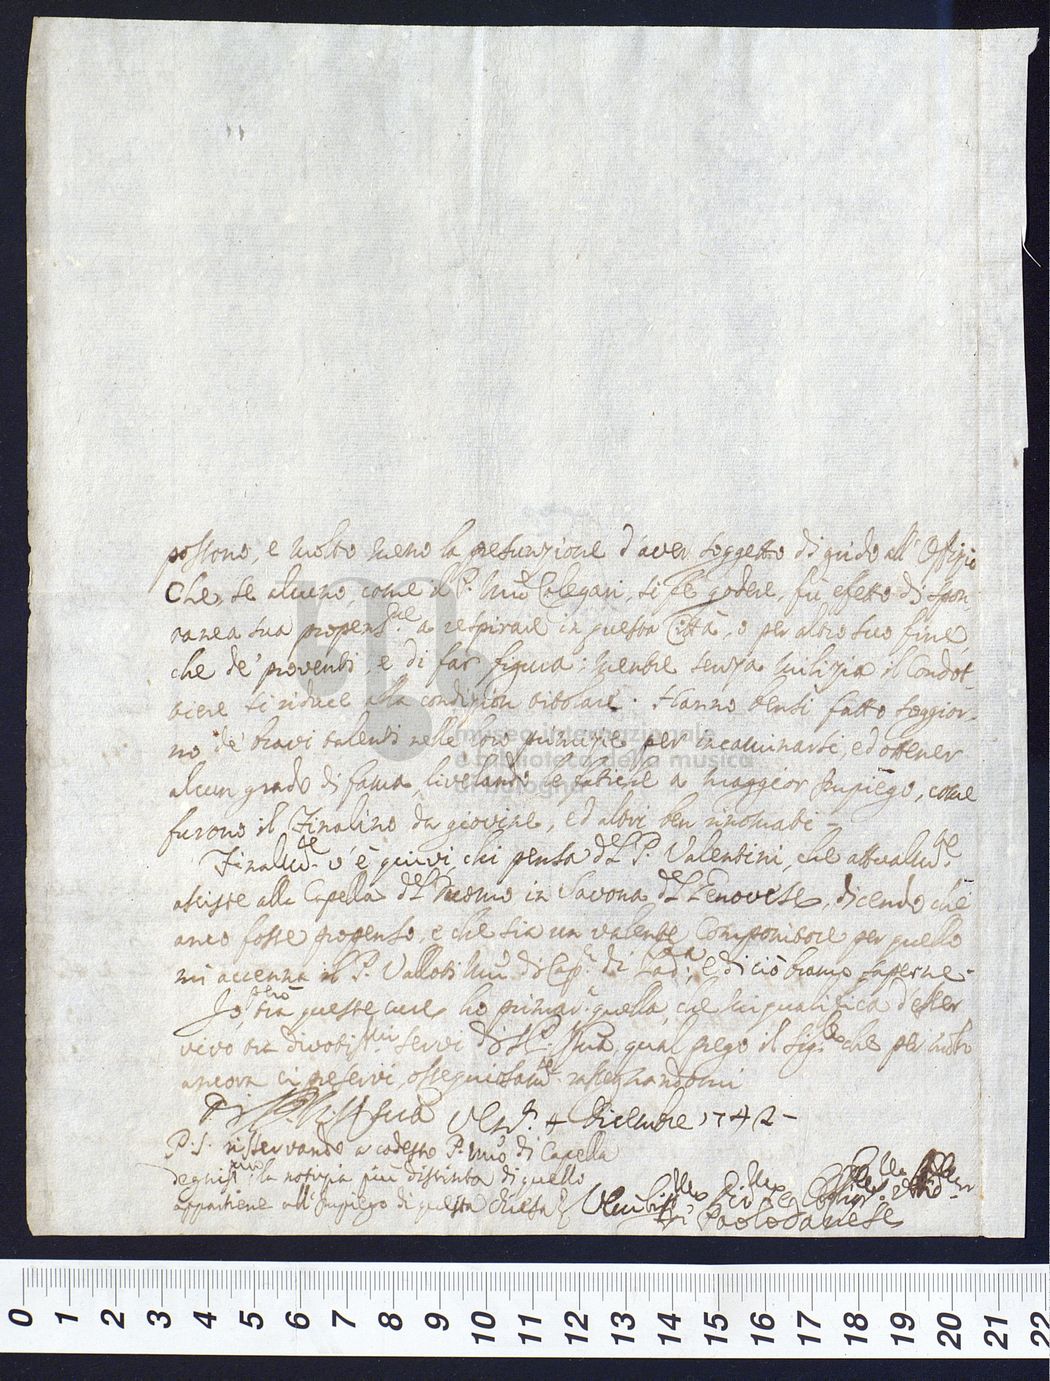 possono, e molto meno la presunzione d'aver soggetto di grido all' Offizio
Che, se alcuno, come il P. Mrõ Calegari, si fè godere, fù efetto di spon-
tanea sua propens.ne a respirare in questa Città, o per altro suo fine,
che de' proventi, e di far figura: mentre senza milizia il Condot-
tiere si riduce alla condizion titolare. Hanno bensi fatto soggior-
no de' bravi talenti nelle loro principie per incaminarsi, ed ottener
alcun grado di fama, livelando le fatiche a maggior Impiego, come
furono il Finalino da giovine, ed altri ben rinomati -
Finalm.te v'è quivi chi pensa del P. Valentini, che attualm.te
assiste alla Capella del Duomo in Savona del Genovese, dicendo che
anco fosse propenso, e che sia un valente Componitore per quello
mi accenna il P. Valloti Mrõ di Cap.a di Pad.a, e di ciò bramo saperne -
Io però trà queste cure ho primar.a quella, che mi qualifica d'esser
vivo tra divotis.mi servi di S.P. Sua, qual prego il Sig.re che per molto
ancora ci preservi, ossequiosam.te rassegnandomi
Di S.P. M. Sua Ven.a 4 Dicembre 1742 -
P.S. risservando a codesto P. Mrõ di Capella
degnis.mo la notizia più distinta di quello
appartiene all' Impiego di questa Chiesa
Umilis.
Paolo Danese
museo internazionale
e biblioteca della musica
di bologna
0 1 2 3 4 5 6 7 8 9 10 11 12 13 14 15 16 17 18 19 20 21 22